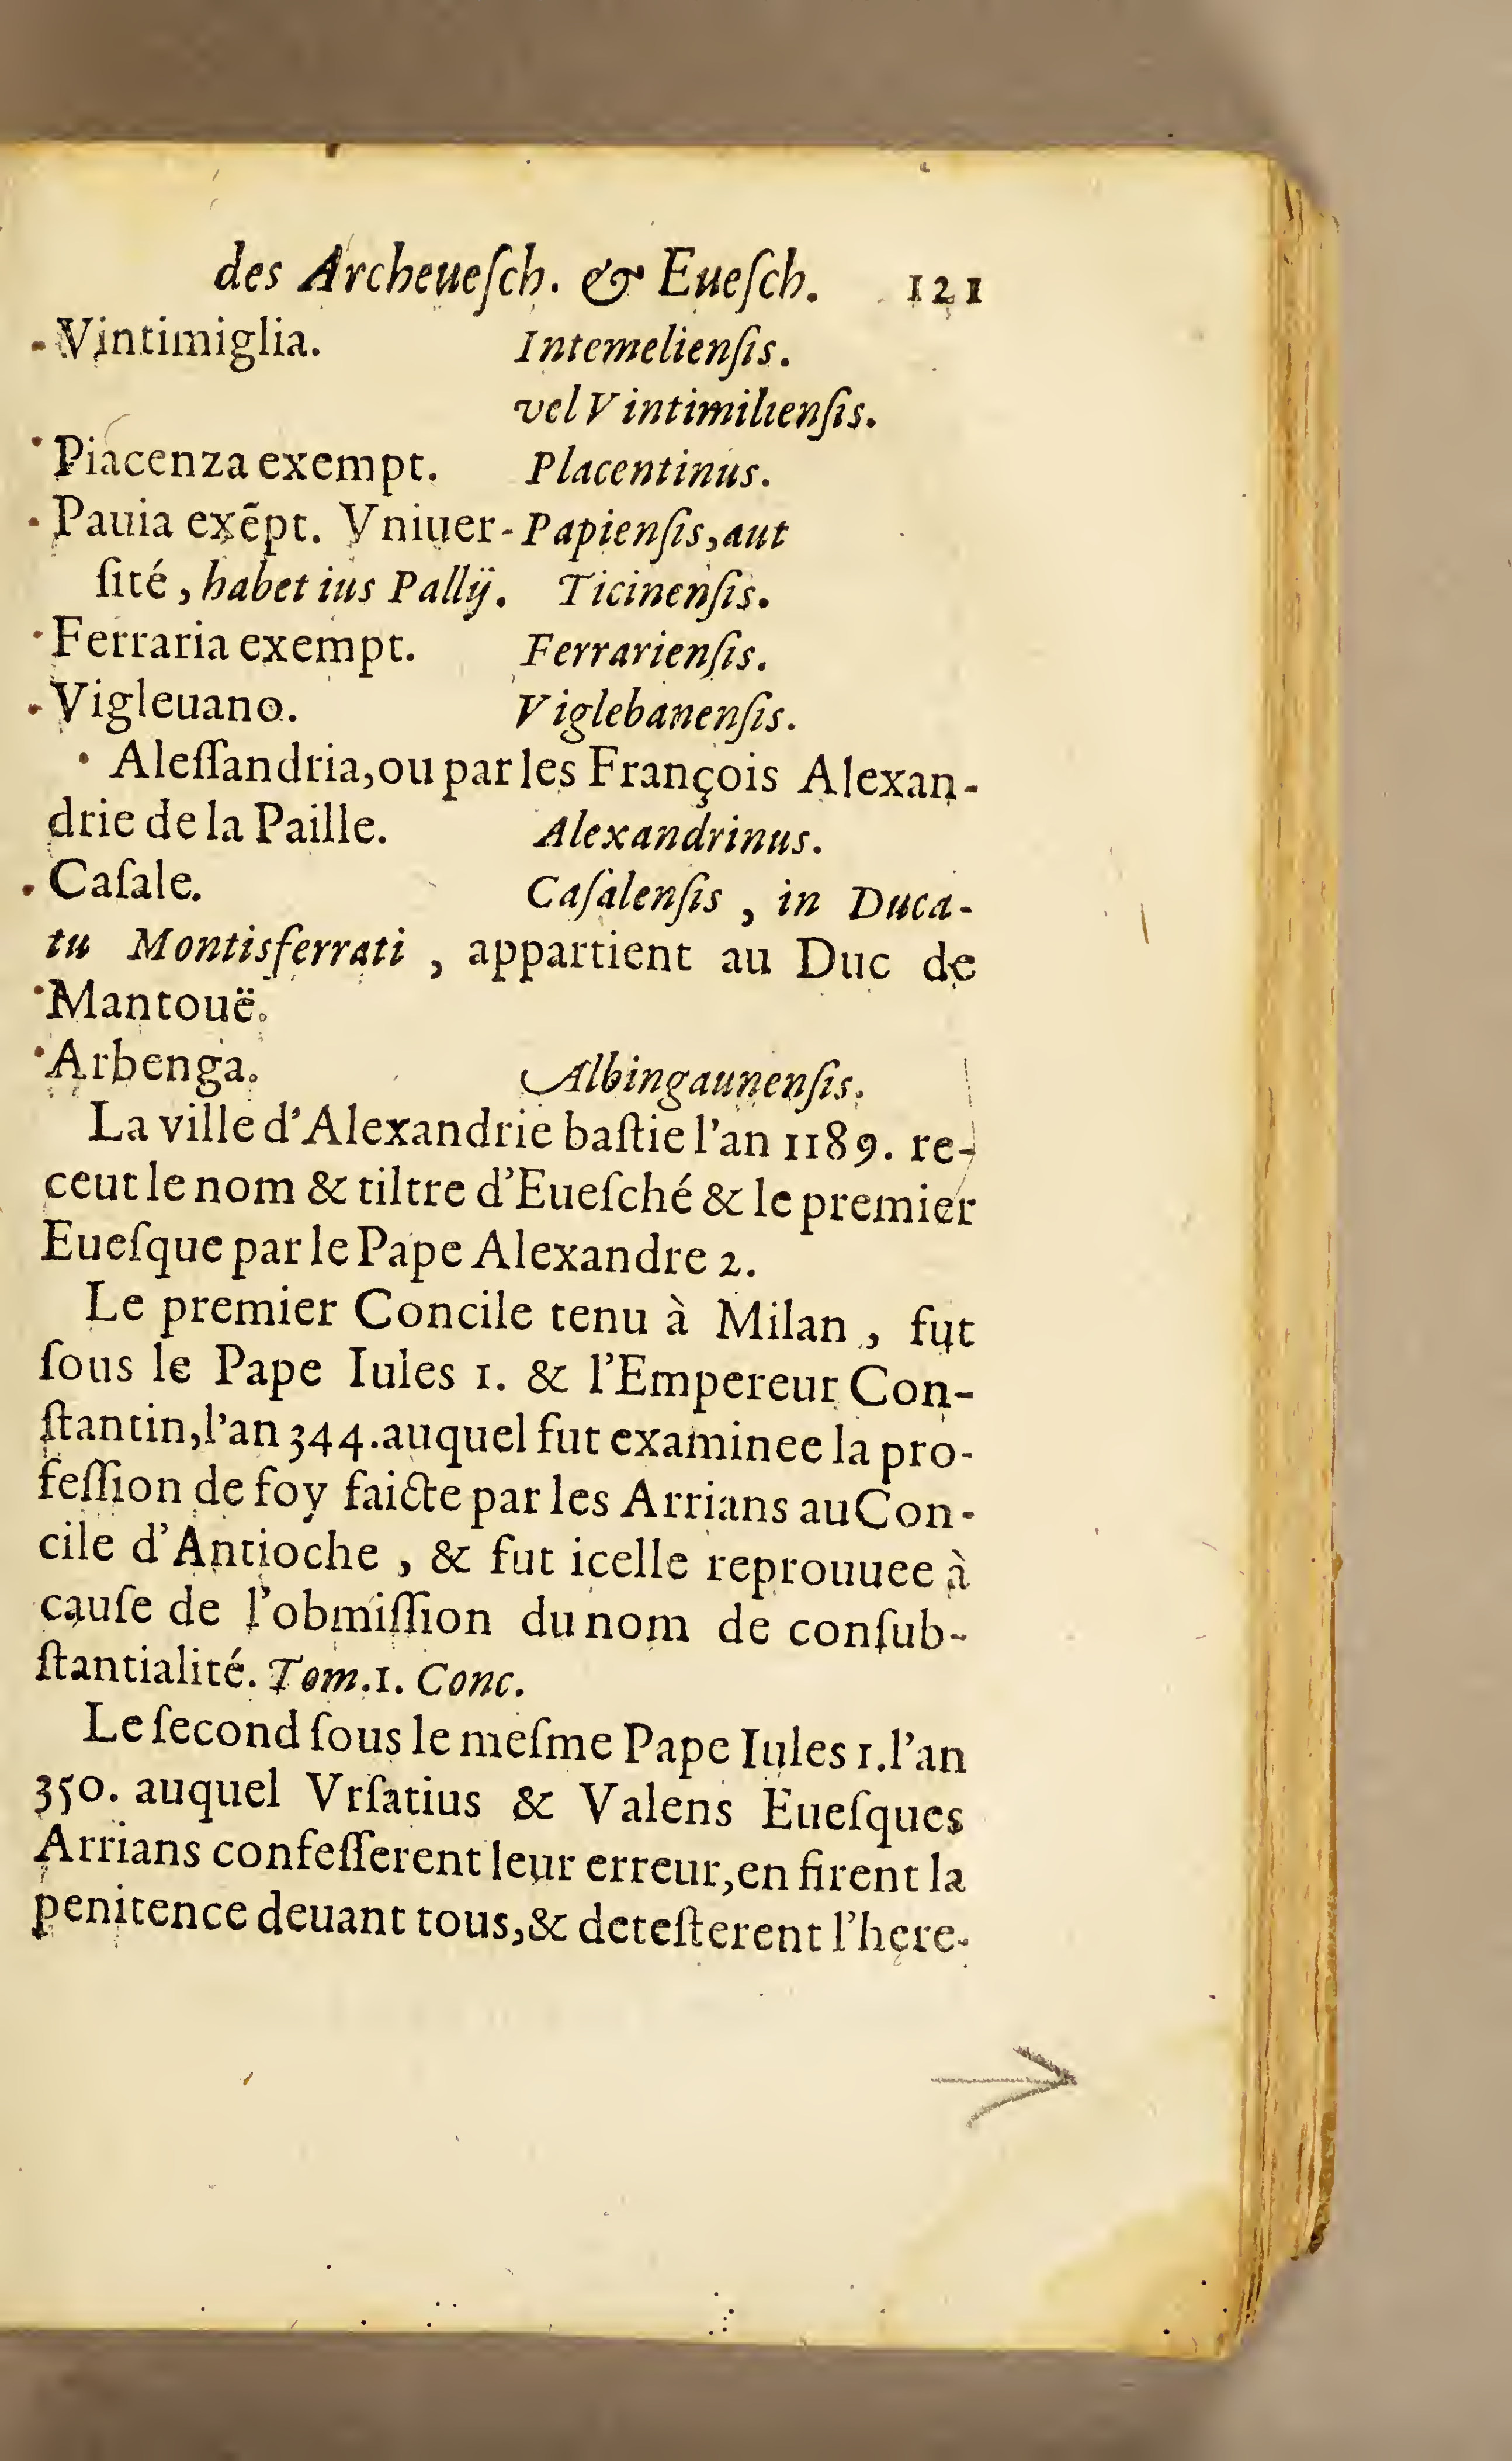 des Archeueſch. & Eueſch. 121
Vintimiglia. Intemelienſis.
vel Vintimilienſis.
Piacenza exempt. Placentinus.
Pauia exẽpt. Vniuer- Papienſis, aut
ſité, habet ius Pallij. Ticinenſis.
Ferraria exempt. Ferrarienſis.
Vigleuano. Viglebanenſis.
Aleſſandria, ou par les François Alexan-
drie de la Paille. Alexandrinus.
Caſale. Caſalenſis, in Duca-
tu Montisferrati, appartient au Duc de
Mantouë.
Arbenga. Albingaunenſis.
La ville d'Alexandrie baſtie l'an 1189. re-
ceut le nom & tiltre d'Eueſché & le premier
Eueſque par le Pape Alexandre 2.
Le premier Concile tenu à Milan, fut
ſous le Pape Iules 1. & l'Empereur Con-
ſtantin, l'an 344. auquel fut examinee la pro-
feſſion de foy faicte par les Arrians au Con-
cile d'Antioche, & fut icelle reprouuee à
cauſe de l'obmiſſion du nom de conſub-
ſtantialité. Tom. 1. Conc.
Le ſecond ſous le meſme Pape Iules 1. l'an
350. auquel Vrſatius & Valens Eueſques
Arrians confeſſerent leur erreur, en firent la
penitence deuant tous, & deteſterent l'here-